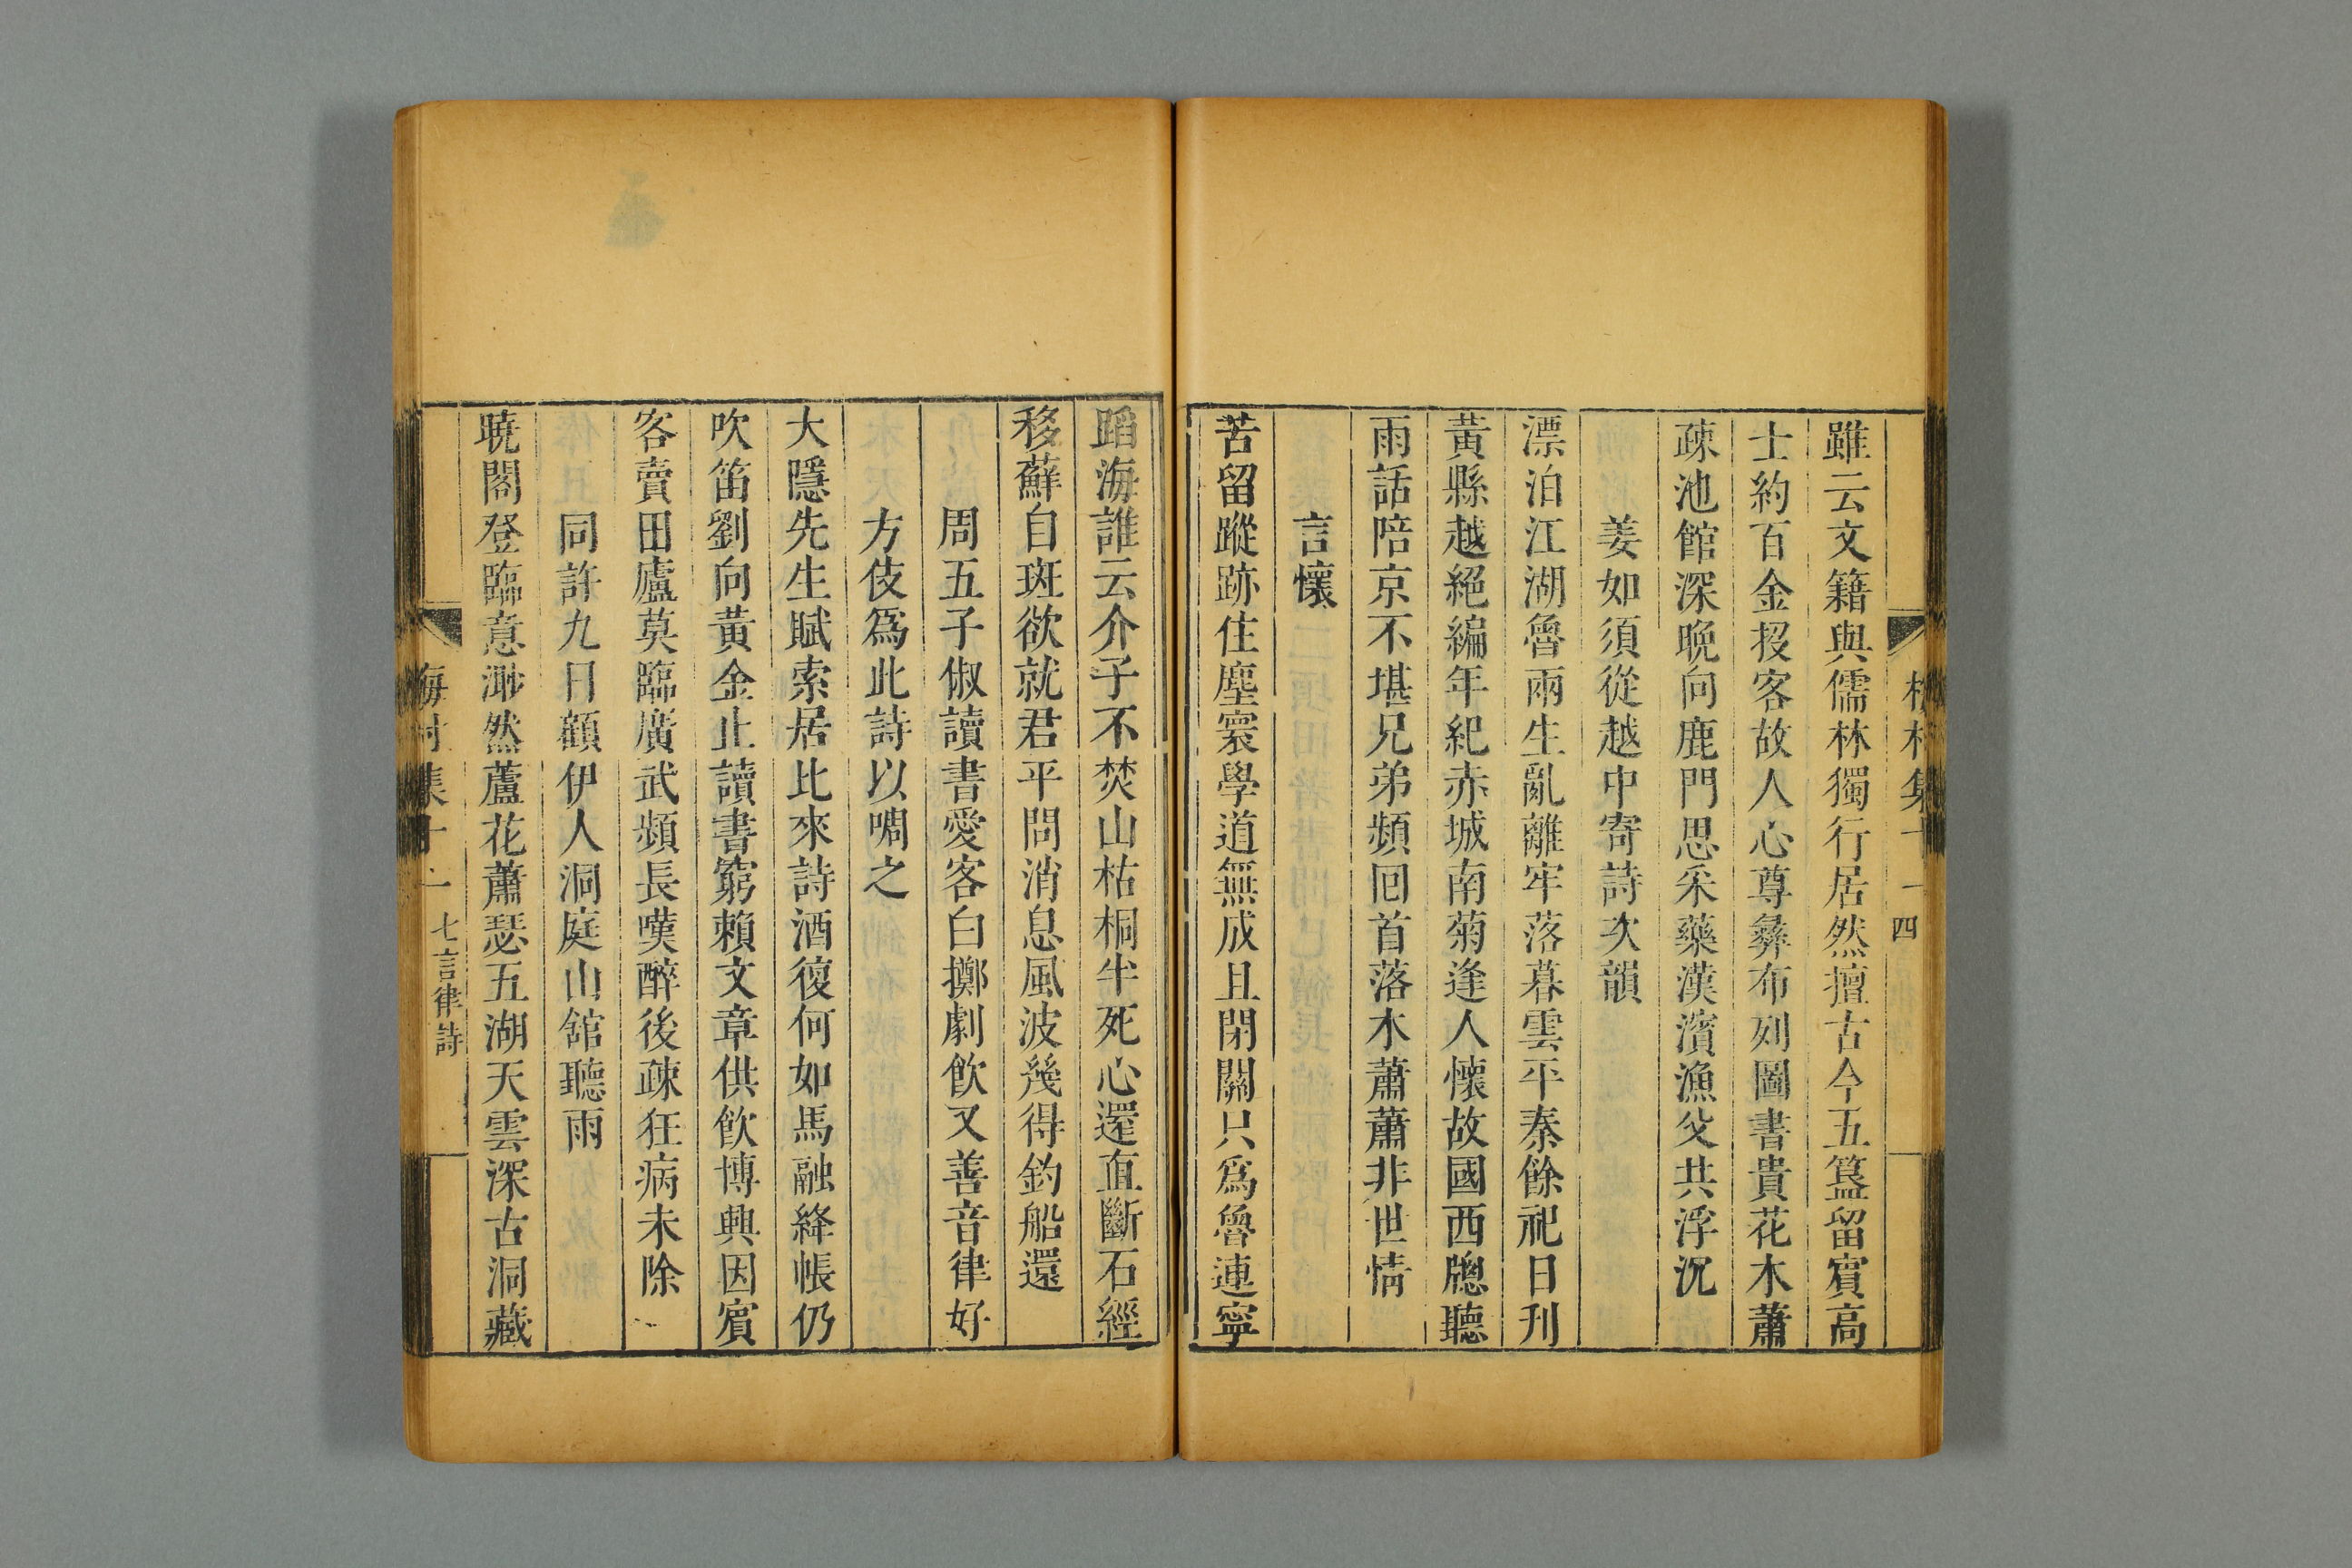 雖云文籍與儒林獨行居然擅古今五簋留賓高
士約百金投客故人心尊彝布列圖書貴花木蕭
疎池館深晚向鹿門思采藥漢濱漁父共浮沉
姜如須從越中寄詩次韻
漂泊江湖魯兩生亂離牢落暮雲平秦餘祀日刋
黃縣越絕編年紀赤城南菊逢人懷故國西牕聽
雨話陪京不堪兄弟頻囘首落木蕭蕭非世情
言懷
苦留蹤跡住塵寰學道無成且閉關只爲魯連寧
四
蹈海誰云介子不焚山枯桐半死心還直斷石經
移蘚自斑欲就君平問消息風波幾得釣船還
周五子俶讀書愛客白擲劇飲又善音律好
方伎爲此詩以啁之
大隱先生賦索居比來詩酒復何如馬融絳帳仍
吹笛劉向黃金止讀書窮賴文章供飲博興因賓
客賣田廬莫臨廣武頻長嘆醉後疎狂病未除
同許九日顧伊人洞庭山館聽雨
曉閣登臨意渺然蘆花蕭瑟五湖天雲深古洞藏
七言律詩